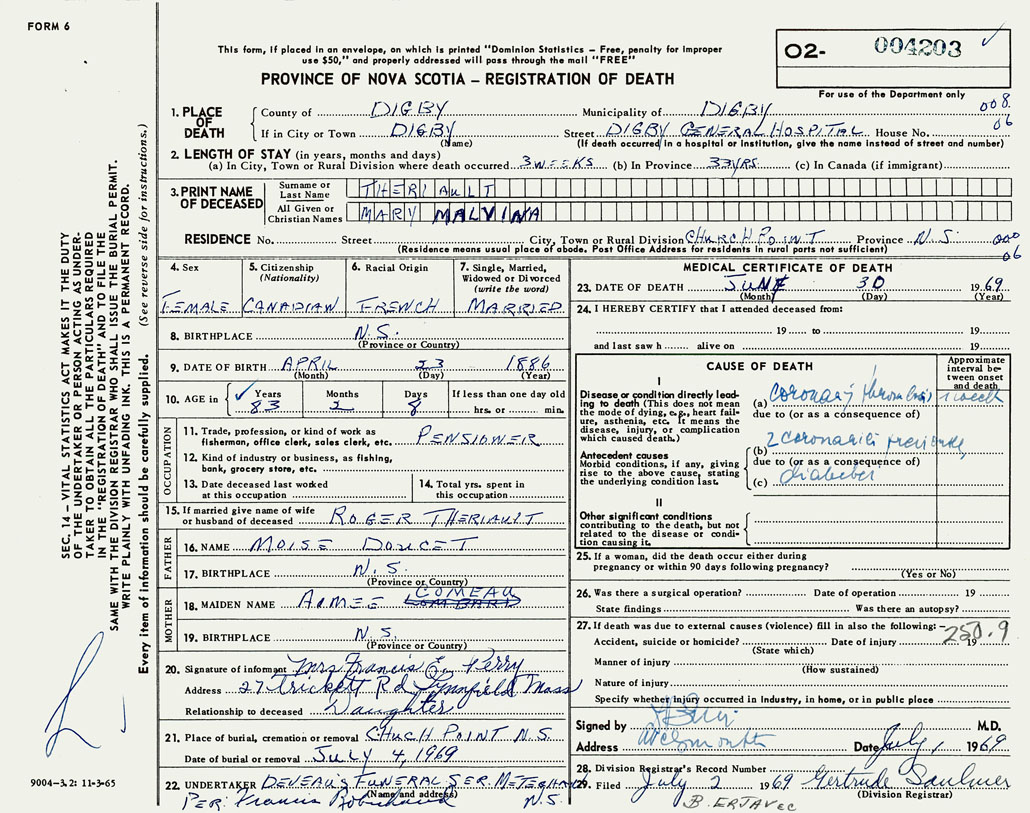 FORM 6
This form, if placed in an envelope, on which is printed "Dominion Statistics – Free, penalty for improper
use $50," and properly addressed will pass through the mail "FREE"
PROVINCE OF NOVA SCOTIA – REGISTRATION OF DEATH
O2- 004203
For use of the Department only
1. PLACE OF DEATH
County of DIGBY Municipality of DIGBY 008.
If in City or Town DIGBY Street DIGBY GENERAL HOSPITAL House No. 06
(Name) (If death occurred in a hospital or institution, give the name instead of street and number)
2. LENGTH OF STAY (in years, months and days)
(a) In City, Town or Rural Division where death occurred 3 WEEKS (b) In Province 33 YRS (c) In Canada (if immigrant)
3. PRINT NAME OF DECEASED
Surname or Last Name THERIAULT
All Given or Christian Names MARY MALVINA
RESIDENCE No. Street City, Town or Rural Division CHURCH POINT Province N.S. 000
(Residence means usual place of abode. Post Office Address for residents in rural parts not sufficient) 06
4. Sex FEMALE
5. Citizenship (Nationality) CANADIAN
6. Racial Origin FRENCH
7. Single, Married, Widowed or Divorced (write the word) MARRIED
8. BIRTHPLACE N.S.
(Province or Country)
9. DATE OF BIRTH APRIL 23 1886
(Month) (Day) (Year)
10. AGE in Years 83 Months 2 Days 8 If less than one day old hrs. or min.
OCCUPATION
11. Trade, profession, or kind of work as
fisherman, office clerk, sales clerk, etc. PENSIONER
12. Kind of industry or business, as fishing,
bank, grocery store, etc.
13. Date deceased last worked
at this occupation
14. Total yrs. spent in
this occupation
15. If married give name of wife
or husband of deceased ROGER THERIAULT
FATHER
16. NAME MOISE DOUCET
17. BIRTHPLACE N.S.
(Province or Country)
MOTHER
18. MAIDEN NAME AIMEE COMEAU
19. BIRTHPLACE N.S.
(Province or Country)
20. Signature of informant Mrs Francis E. Perry
Address 27 Trickett Rd Lynnfield Mass
Relationship to deceased Daughter
21. Place of burial, cremation or removal CHUCH POINT N.S.
Date of burial or removal JULY 4, 1969
22. UNDERTAKER DEVEAU'S FUNERAL SER. METEGHAN
(Name and address) N.S.
PER: Francis Robichaud
MEDICAL CERTIFICATE OF DEATH
23. DATE OF DEATH JUNE 30 1969
(Month) (Day) (Year)
24. I HEREBY CERTIFY that I attended deceased from:
19 to 19
and last saw h alive on 19
CAUSE OF DEATH
Approximate interval between onset and death
I
Disease or condition directly leading to death (This does not mean
the mode of dying, e.g., heart failure, asthenia, etc. It means the
disease, injury, or complication
which caused death.)
(a) coronary thrombosis 1 week
due to (or as a consequence of)
Antecedent causes
Morbid conditions, if any, giving
rise to the above cause, stating
the underlying condition last.
(b) 2 previously
due to (or as a consequence of)
(c) diabetes
II
Other significant conditions
contributing to the death, but not
related to the disease or condition causing it.
25. If a woman, did the death occur either during
pregnancy or within 90 days following pregnancy?
(Yes or No)
26. Was there a surgical operation? Date of operation 19
State findings Was there an autopsy?
27. If death was due to external causes (violence) fill in also the following:
250.9
Accident, suicide or homicide? Date of injury 19
(State which)
Manner of injury
(How sustained)
Nature of injury
Specify whether injury occurred in industry, in home, or in public place
Signed by M.D.
Address Weymouth Date July 1 1969
28. Division Registrar's Record Number
29. Filed July 2 1969 Gertrude Saulnier
(Division Registrar)
SEC. 14 – VITAL STATISTICS ACT MAKES IT THE DUTY
OF THE UNDERTAKER OR PERSON ACTING AS UNDERTAKER TO OBTAIN ALL THE PARTICULARS REQUIRED
IN THE "REGISTRATION OF DEATH" AND TO FILE THE
SAME WITH THE DIVISION REGISTRAR WHO SHALL ISSUE THE BURIAL PERMIT.
WRITE PLAINLY WITH UNFADING INK. THIS IS A PERMANENT RECORD.
Every item of information should be carefully supplied. (See reverse side for instructions.)
9004–3.2: 11-3-65